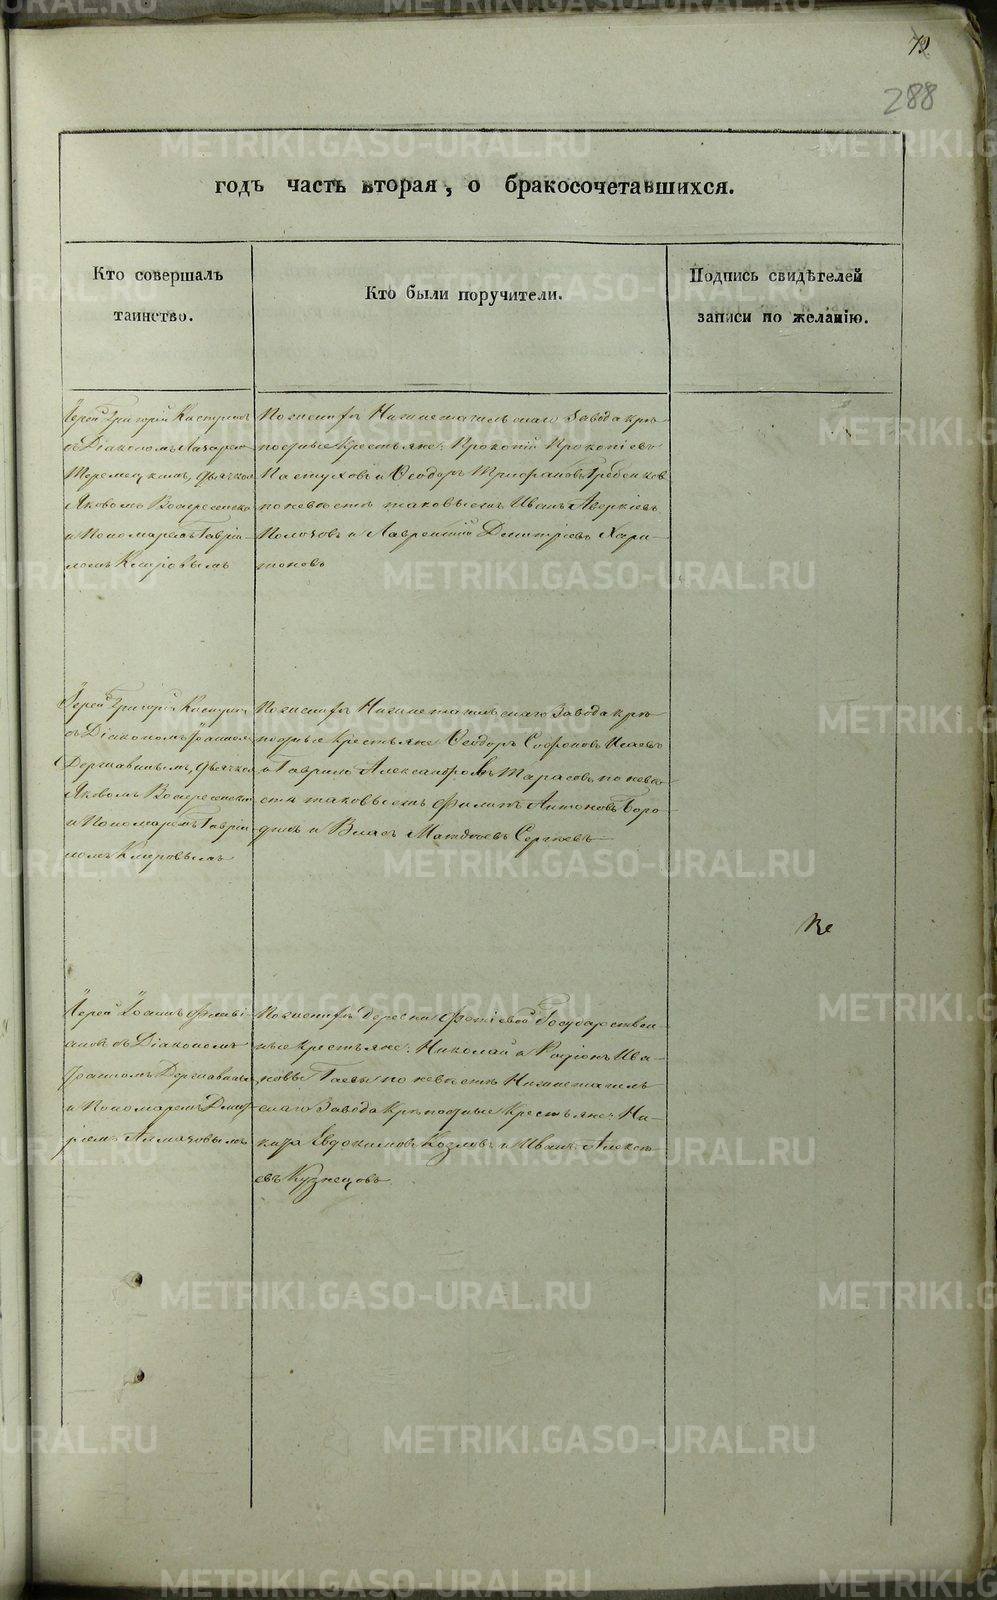 72
288
годъ часть вторая, о бракосочетавшихся.
Кто совершалъ
таинство.
Кто были поручители.
Подпись свидѣтелей
записи по желанію.
Іерей Григорій
съ Діакономъ Назаромъ
дьячкомъ
Яковомъ Воскресенскимъ
и Пономаремъ Гаврiи-
ломъ Кипровымъ
По женихѣ Нижнетагильскаго Завода крѣ-
постные крестьяне: Прокопій Прокопіевъ
Пастуховъ и Ѳеодоръ Трифановъ Гребенковъ
по невѣстѣ таковыежъ Иванъ Аверкіевъ
и Лаврентій Димитріевъ Хари-
тоновъ
Іерей Григорій
съ Діакономъ Іоанномъ
Державинымъ, дьячкомъ
Яковомъ Воскресенскимъ
и Пономаремъ Гаврiи-
ломъ Кипровымъ
По женихѣ Нижнетагильскаго Завода крѣ-
постные крестьяне Ѳеодоръ Софоновъ Исаевъ
и Гаврило Александровъ Тарасовъ по невѣ-
стѣ таковыежъ Филатъ Антоновъ Боро-
динъ и Власъ Матвѣевъ Сергѣевъ
Іерей Іоаннъ Флаві-
ановъ съ Діакономъ
Іоанномъ Державинымъ
и Пономаремъ Димит-
ріемъ
По женихѣ деревни Государствен-
ные крестьяне: Николай и Родіонъ Ива-
новы Гаевы по невѣстѣ Нижнетагиль-
скаго Завода крѣпостные крестьяне: Ни-
кита Евдокимовъ Козловъ и Иванъ Алексѣ-
евъ Кузнецовъ
METRIKI.GASO-URAL.RU